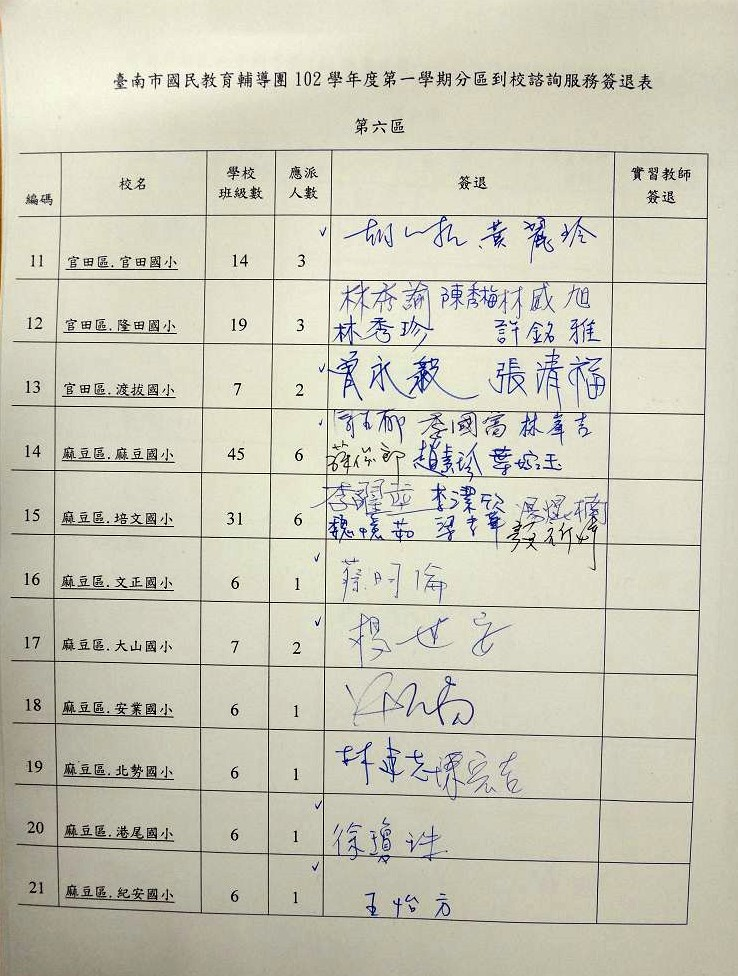 臺南市國民教育輔導團 102 學年度第一學期分區到校諮詢服務簽退表
第六區
編碼 校名 學校班級數 應派人數 簽退 實習教師簽退
11 官田區.官田國小 14 3 黃麗玲
12 官田區.隆田國小 19 3 陳秀梅 林威旭
林秀珍 許銘雅
13 官田區.渡拔國小 7 2 曾永毅 張清福
14 麻豆區.麻豆國小 45 6 李國富 林韋吉
15 麻豆區.培文國小 31 6 李潔欣
魏憶茹
16 麻豆區.文正國小 6 1 蔡明倫
17 麻豆區.大山國小 7 2 楊世宏
18 麻豆區.安業國小 6 1
19 麻豆區.北勢國小 6 1 林建志 陳宏吉
20 麻豆區.港尾國小 6 1 徐瓊珠
21 麻豆區.紀安國小 6 1 王怡方